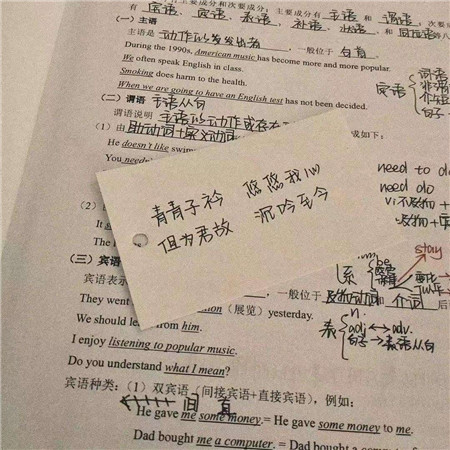 有主要成分和次要成分；主要成分有 主语 和 谓语，次要
有 宾语、定语、表语、补语、状语 和 同位语 等八
(一) 主语
主语是 动作的发出者，一般位于 句首。
During the 1990s, American music has become more and more popular.
We often speak English in class.
Smoking does harm to the health.
When we are going to have an English test has not been decided.
主语从句
(二) 谓语
谓语说明 主语的动作或存在
或如下：
(1) 由 助动词+实义动词
He doesn't like swim
You needn
need to do
need do
vi 不及物+
及物+
青青子衿 悠悠我心
但为君故 沉吟至今
(2)
It
The
stay
be
系
(三) 宾语
宾语表示
，一般位于 及物动词 和 介词 后
They went
(展览) yesterday.
n.
We should le
from him.
表 adj ↔ adv.
I enjoy listening to popular music.
句子 → 表语从句
Do you understand what I mean?
宾语种类：(1) 双宾语（间接宾语+直接宾语），例如：
间 直
He gave me some money.= He gave some money to me.
Dad bought me a computer. = Dad bought a computer